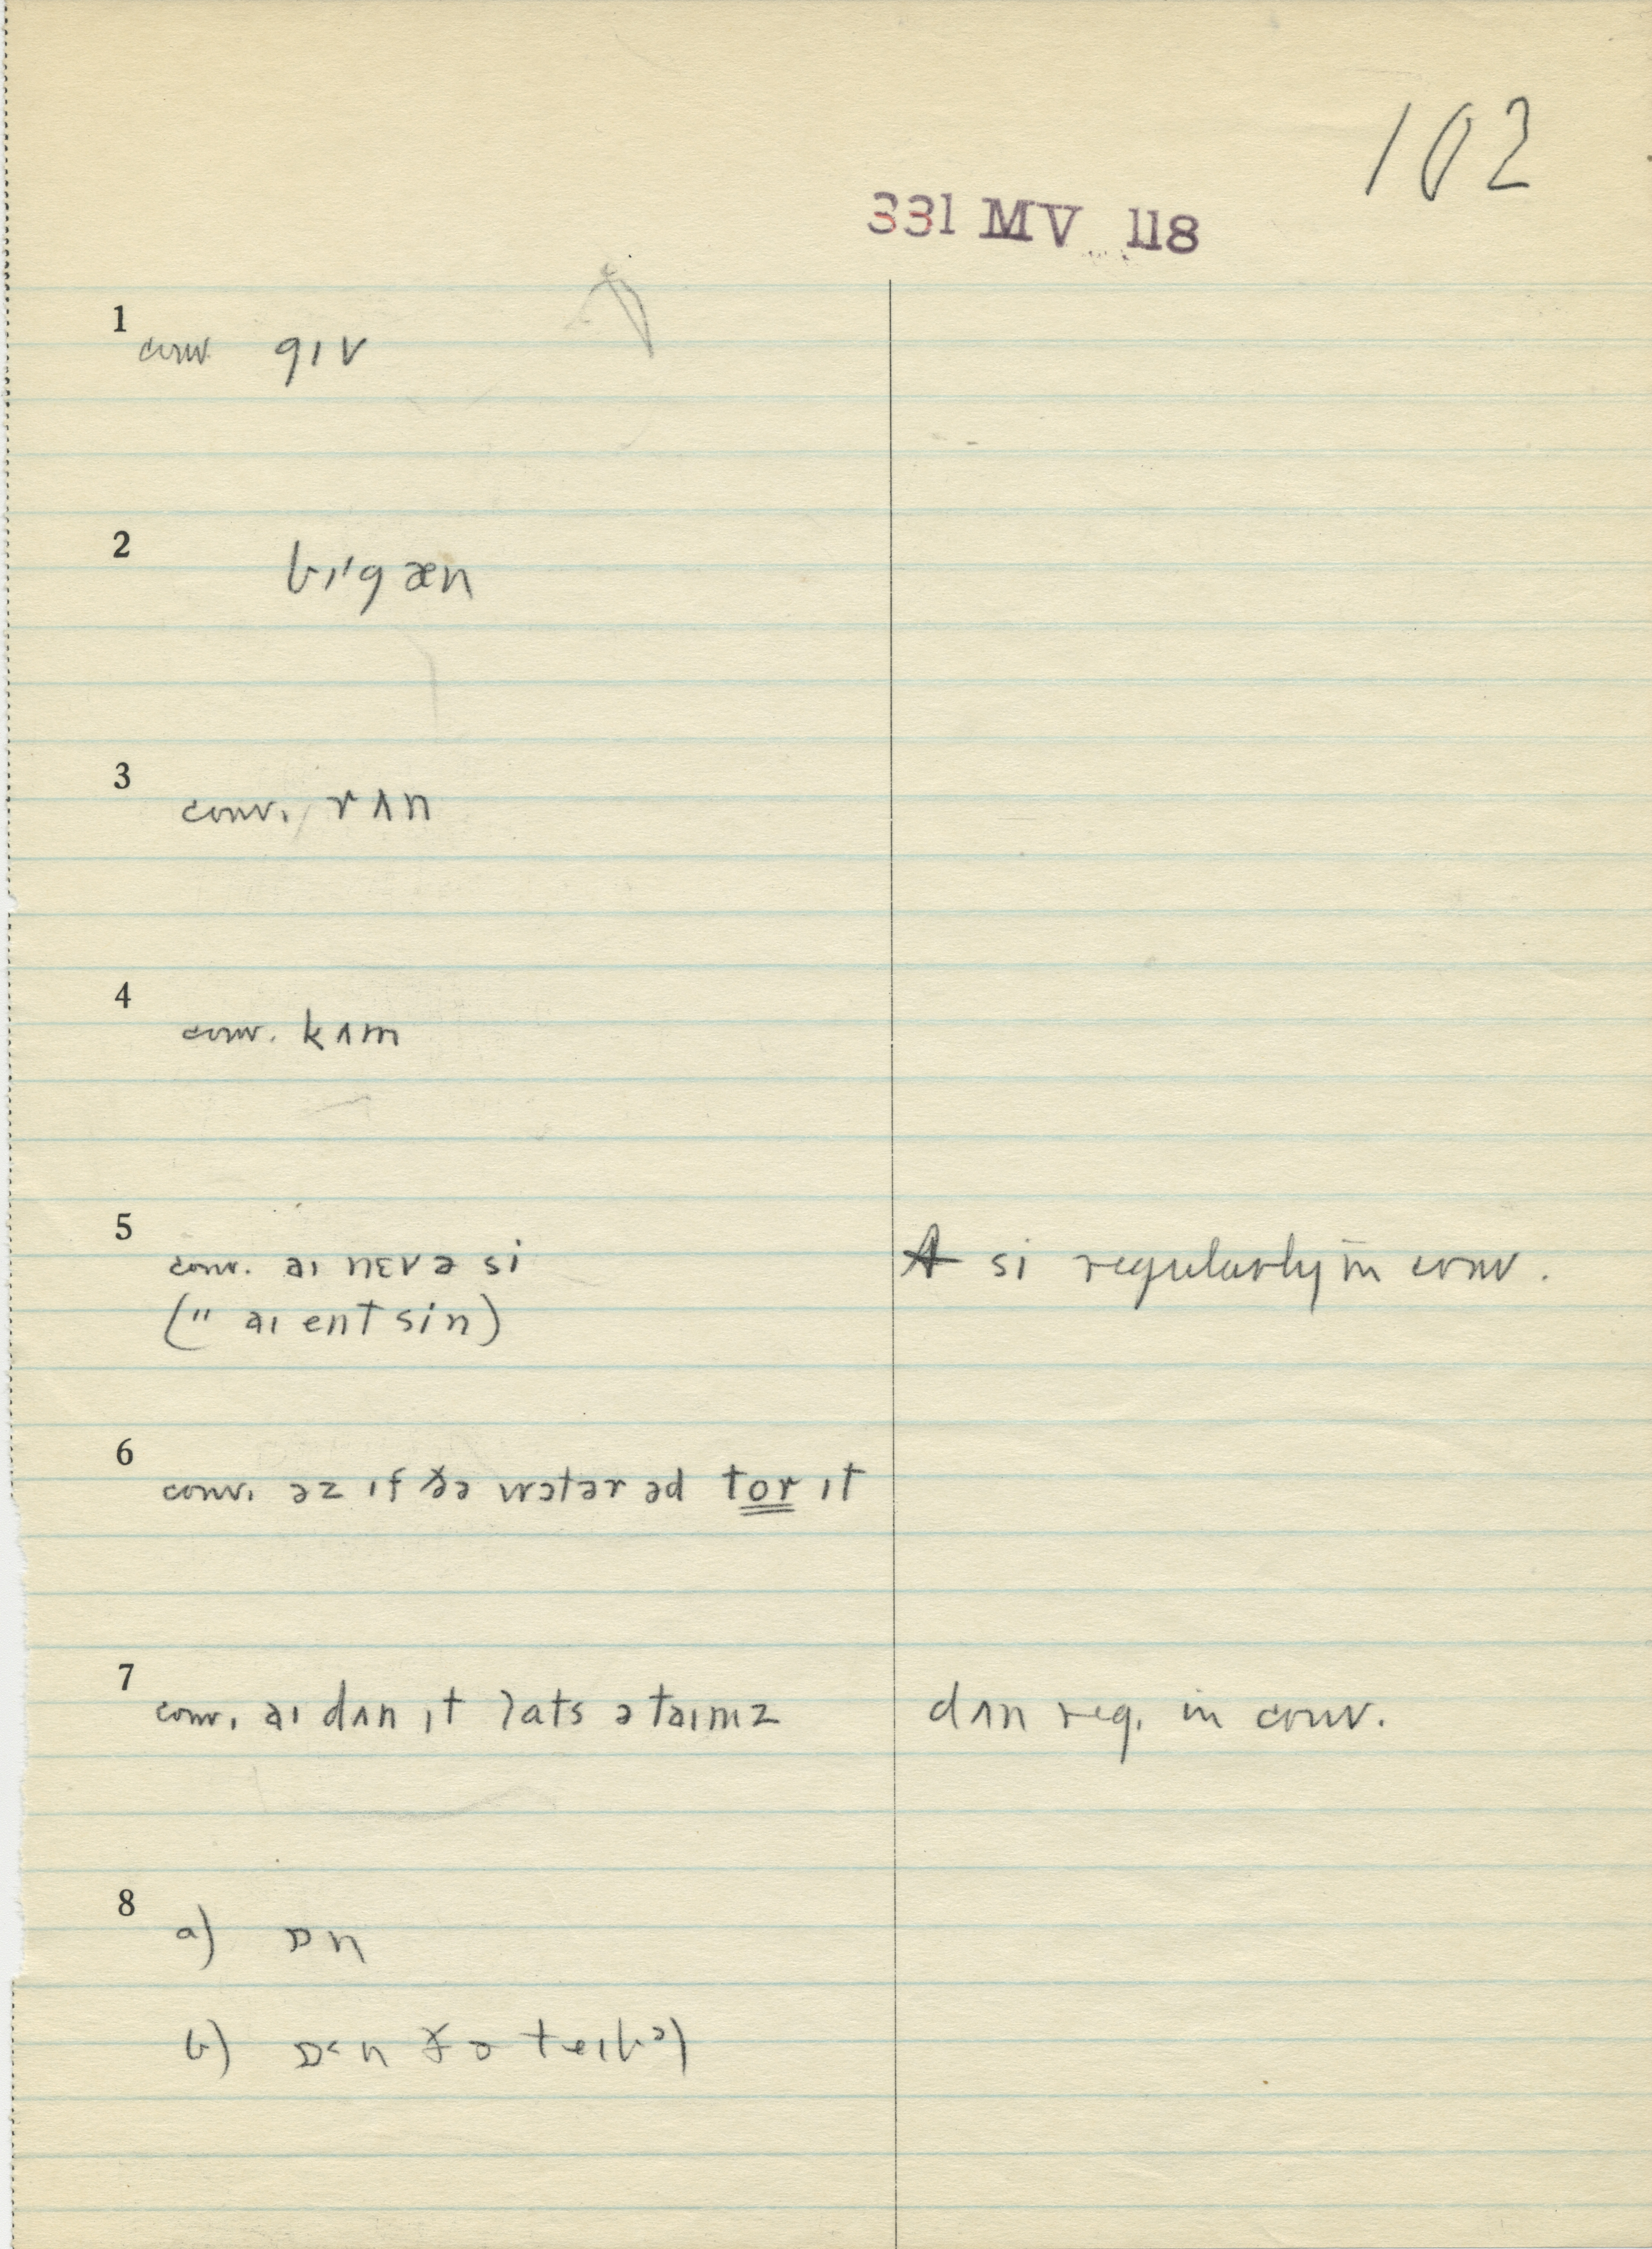 102
331 MV 118
1
conv gɪv
2
bɪ'gæn
3
conv. rʌn
4
conv. kʌm
5
conv. aɪ nɛvə si
si regularly in conv.
(" aɪ ent sin)
6
conv. əz ɪf ðə wɔtər əd tor ɪt
7
conv. aɪ dʌn ɪt lats ə taɪmz
dʌn reg. in conv.
8
a) ɒn
b) ɒ˂n ðə teɪbəl